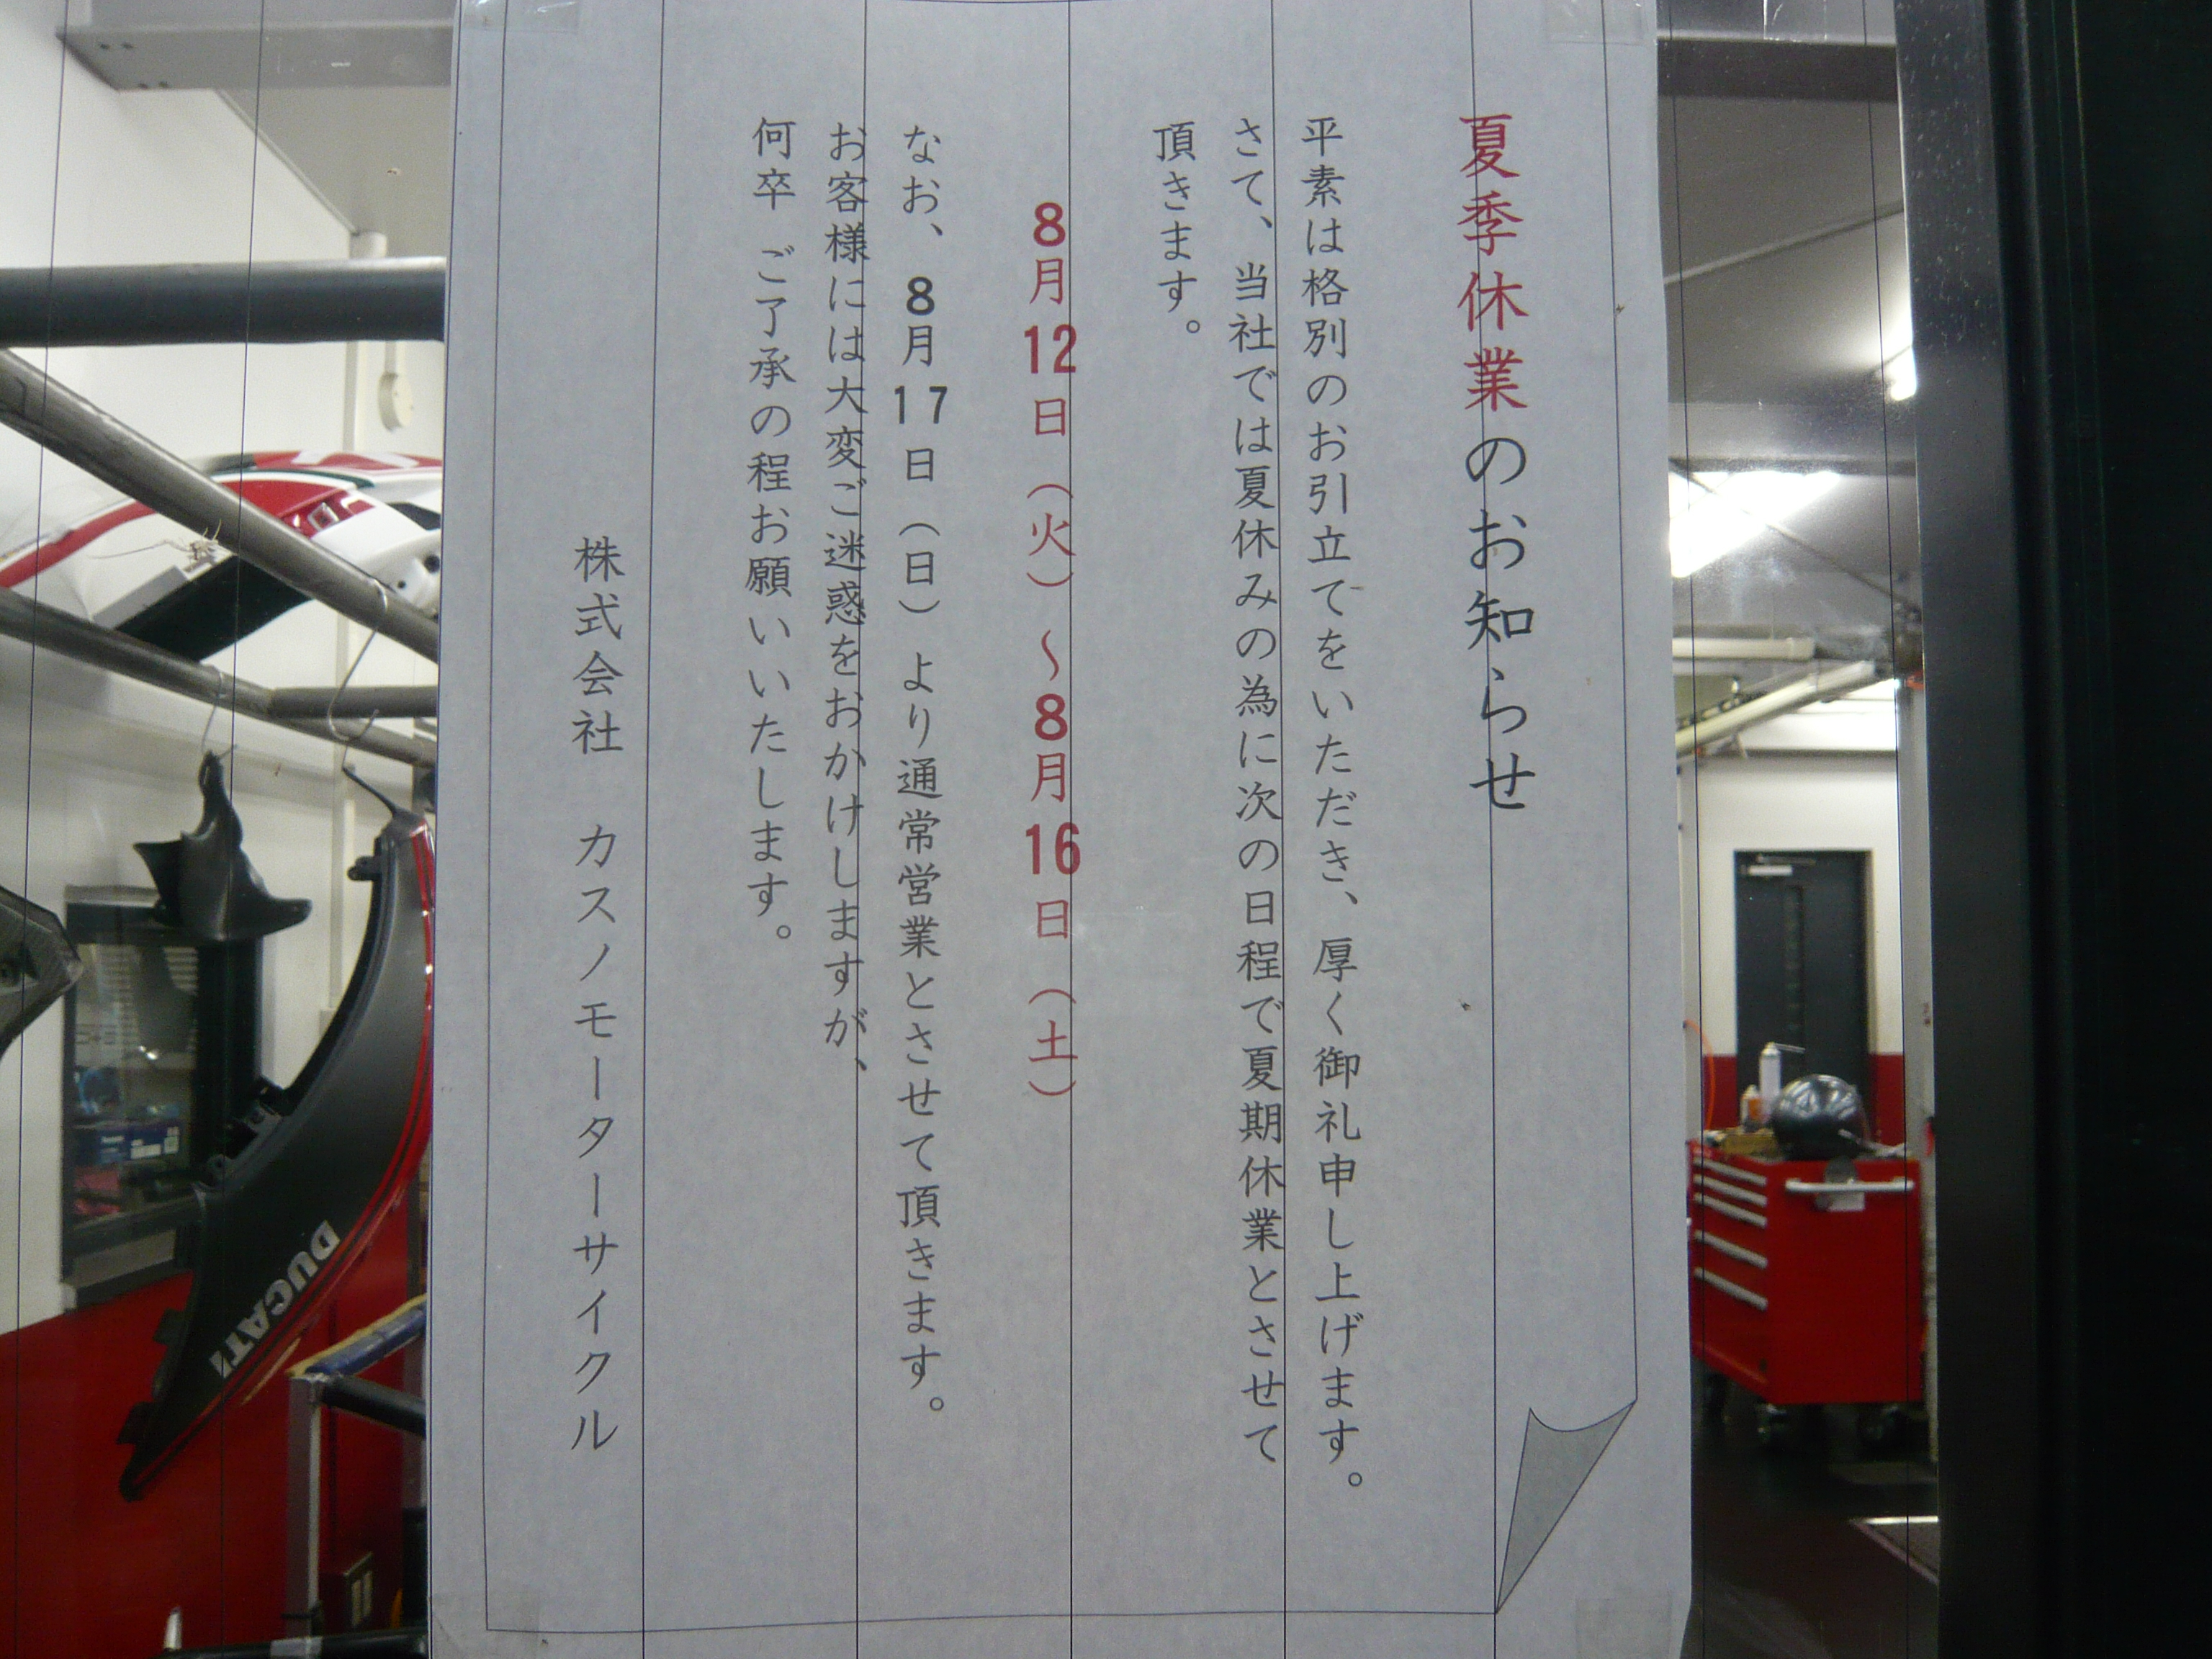 夏季休業のお知らせ
平素は格別のお引立てをいただき、厚く御礼申し上げます。
さて、当社では夏休みの為に次の日程で夏期休業とさせて
頂きます。
8月12日（火）～8月16日（土）
なお、8月17日（日）より通常営業とさせて頂きます。
お客様には大変ご迷惑をおかけしますが、
何卒 ご了承の程お願いいたします。
株式会社 カスノモーターサイクル
DUCATI